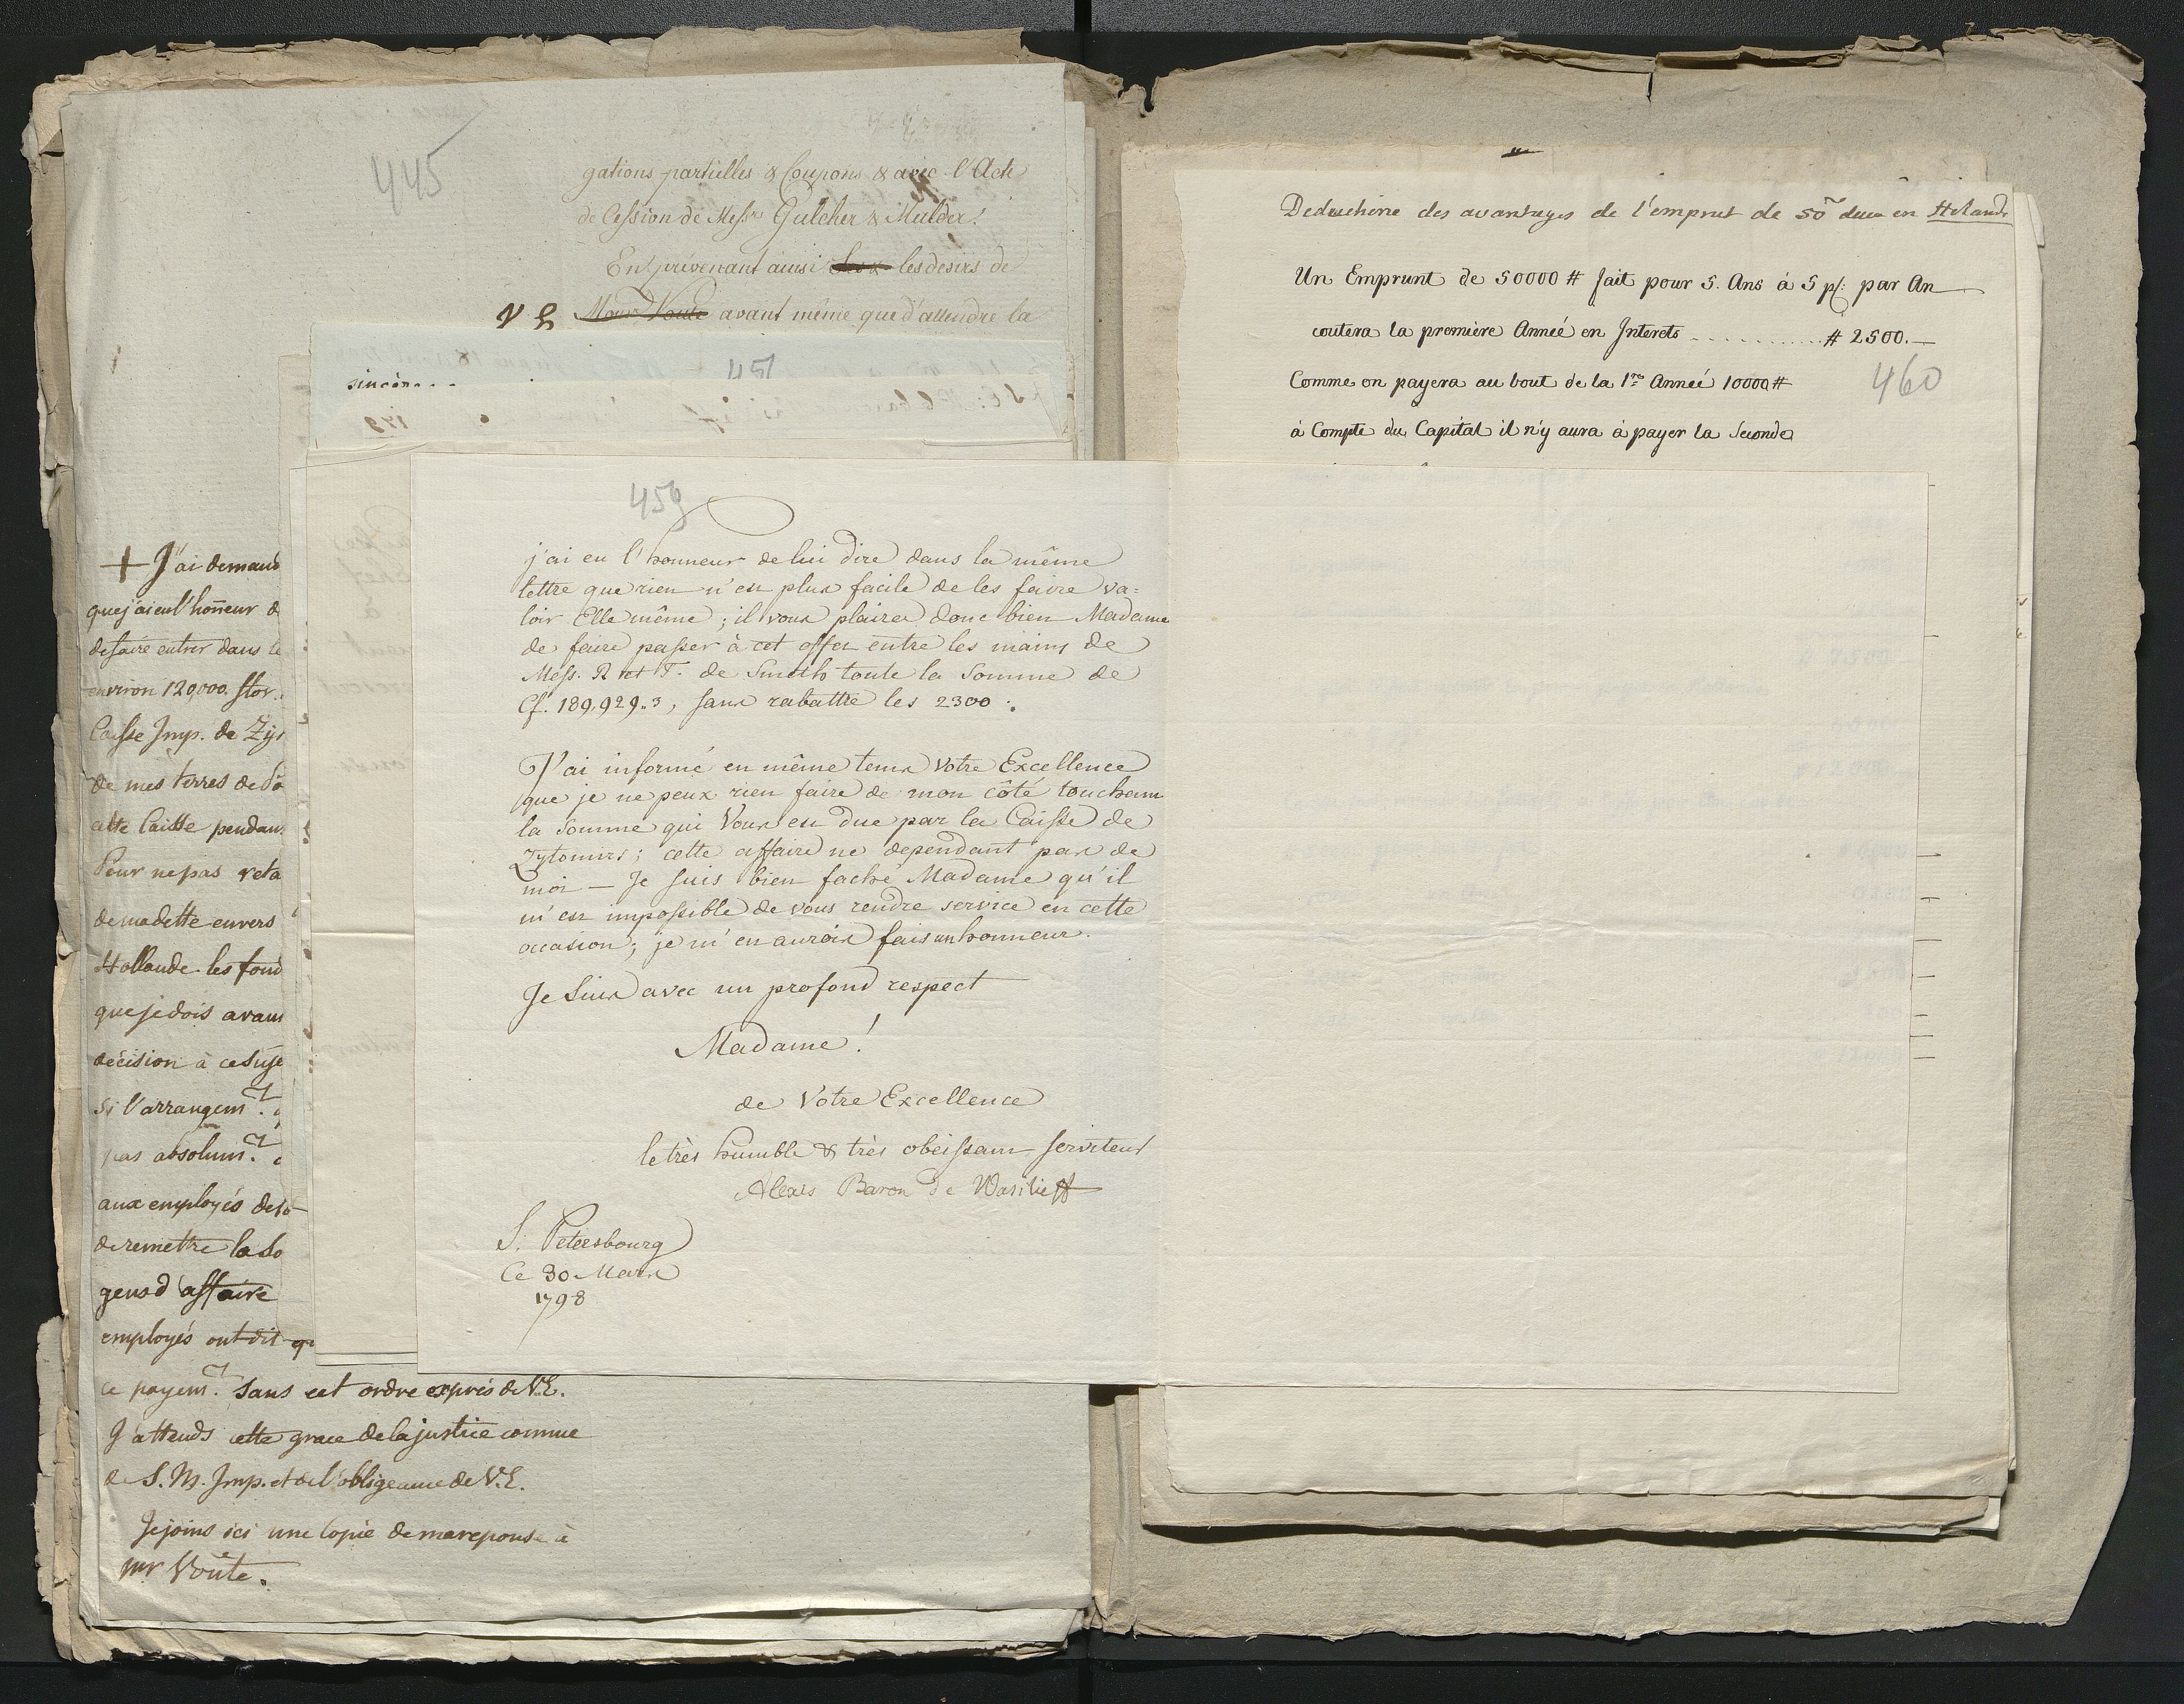 445
gations partielles & Coupons & avec l'Acte
de Cession de Messrs Gulcher & Mulder.
En prévenant ainsi les desirs de
V E Mour Voute avant même que d'attendre la
451
sincèr...
+ J'ai demand
que j'ai eu l'honneur d
de faire entrer dans le
environ 120,000. flor.
Caisse Imp. de Zyt
de mes terres de
cette Caisse pendan
Pour ne pas reta
de ma dette envers
Hollande les fond
que je dois avan
décision à ce suje
si l'arrangemt.
pas absolumt.
aux employés de
de remettre la so
gens d'affaire
employés ont dit qu
ce payemt. sans cet ordre exprès de V.E.
J'attends cette grace de la justice connue
de S. M. Imp. et de l'obligeance de V.E.
Je joins ici une copie de ma reponse à
mr Voûte.
459
j'ai eu l'honneur de lui dire dans la même
lettre que rien n'est plus facile de les faire va=
loir Elle même; il vous plaira donc bien Madame
de faire passer à cet effet entre les mains de
Mess. R et T. de Smeth toute la Somme de
Cf. 189,929.3, sans rabattre les 2300.
J'ai informé en même tems Votre Excellence
que je ne peux rien faire de mon côté touchant
la Somme qui Vous est due par la Caisse de
Zytomirs; cette affaire ne dependant pas de
moi — Je suis bien faché Madame qu'il
m'est impossible de vous rendre service en cette
occasion; je m'en aurois fais un honneur.
Je Suis avec un profond respect
Madame!
de Votre Excellence
le très humble & très obeissant serviteur
Alexis Baron de Wasilieff
S. Petersbourg
Ce 30 Mars
1798
des avantages de l'emprut de 50m duca en Holande
Un Emprunt de 50000 # fait pour 5. Ans à 5 p/: par An
coutera la première Anneé en Interets ........... # 2500.—
Comme on payera au bout de la 1re Anneé 10000 #
460
à Compte du Capital il n'y aura à payer la Seconde